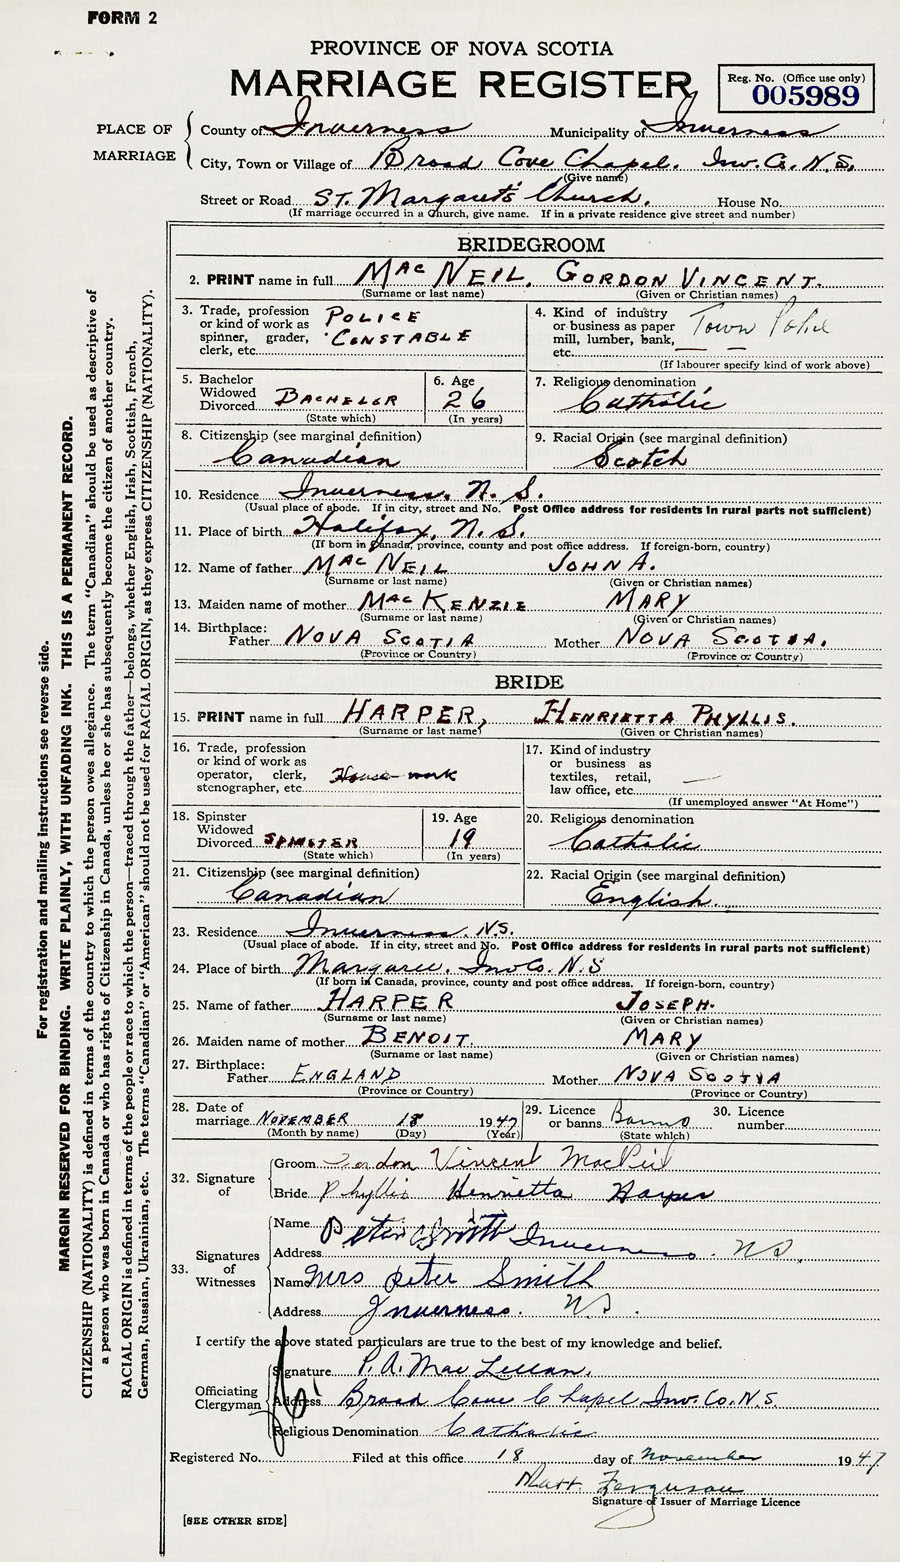 FORM 2
PROVINCE OF NOVA SCOTIA
MARRIAGE REGISTER
Reg. No. (Office use only)
005989
PLACE OF MARRIAGE
County of Inverness Municipality of Inverness
City, Town or Village of Broad Cove Chapel. Inv. Co. N.S.
(Give name)
Street or Road ST. Margaret's Church. House No.
(If marriage occurred in a Church, give name. If in a private residence give street and number)
BRIDEGROOM
2. PRINT name in full MacNEIL, GORDON VINCENT.
(Surname or last name) (Given or Christian names)
3. Trade, profession or kind of work as spinner, grader, clerk, etc. POLICE CONSTABLE
4. Kind of industry or business as paper mill, lumber, bank, etc. Town Police
(If labourer specify kind of work above)
5. Bachelor Widowed Divorced BACHELOR
(State which)
6. Age 26
(In years)
7. Religious denomination
Catholic
8. Citizenship (see marginal definition)
Canadian
9. Racial Origin (see marginal definition)
Scotch
10. Residence Inverness. N. S.
(Usual place of abode. If in city, street and No. Post Office address for residents in rural parts not sufficient)
11. Place of birth Halifax, N. S.
(If born in Canada, province, county and post office address. If foreign-born, country)
12. Name of father MacNEIL JOHN A.
(Surname or last name) (Given or Christian names)
13. Maiden name of mother MacKENZIE MARY
(Surname or last name) (Given or Christian names)
14. Birthplace: Father NOVA SCOTIA Mother NOVA SCOTIA.
(Province or Country) (Province or Country)
BRIDE
15. PRINT name in full HARPER, HENRIETTA PHYLLIS.
(Surname or last name) (Given or Christian names)
16. Trade, profession or kind of work as operator, clerk, stenographer, etc. House-work
17. Kind of industry or business as textiles, retail, law office, etc. —
(If unemployed answer "At Home")
18. Spinster Widowed Divorced SPINSTER
(State which)
19. Age 19
(In years)
20. Religious denomination
Catholic
21. Citizenship (see marginal definition)
Canadian
22. Racial Origin (see marginal definition)
English.
23. Residence Inverness. N.S.
(Usual place of abode. If in city, street and No. Post Office address for residents in rural parts not sufficient)
24. Place of birth Margaree. Inv Co. N.S
(If born in Canada, province, county and post office address. If foreign-born, country)
25. Name of father HARPER JOSEPH.
(Surname or last name) (Given or Christian names)
26. Maiden name of mother BENOIT. MARY
(Surname or last name) (Given or Christian names)
27. Birthplace: Father ENGLAND Mother NOVA SCOTIA
(Province or Country) (Province or Country)
28. Date of marriage NOVEMBER 18 1947
(Month by name) (Day) (Year)
29. Licence or banns Banns
(State which)
30. Licence number
32. Signature of
Groom Gordon Vincent MacNeil
Bride Phyllis Henrietta Harper
33. Signatures of Witnesses
Name Peter Smith
Address Inverness. NS
Name Mrs Peter Smith
Address Inverness. NS.
I certify the above stated particulars are true to the best of my knowledge and belief.
Officiating Clergyman
Signature P. A. MacLellan.
Address Broad Cove Chapel Inv. Co. N.S.
Religious Denomination Catholic
Registered No. Filed at this office 18 day of November 1947
Matt. Ferguson
Signature of Issuer of Marriage Licence
[SEE OTHER SIDE]
For registration and mailing instructions see reverse side.
MARGIN RESERVED FOR BINDING. WRITE PLAINLY, WITH UNFADING INK. THIS IS A PERMANENT RECORD.
CITIZENSHIP (NATIONALITY) is defined in terms of the country to which the person owes allegiance. The term "Canadian" should be used as descriptive of
a person who was born in Canada or who has rights of Citizenship in Canada, unless he or she has subsequently become the citizen of another country.
RACIAL ORIGIN is defined in terms of the people or race to which the person—traced through the father—belongs, whether English, Irish, Scottish, French,
German, Russian, Ukrainian, etc. The terms "Canadian" or "American" should not be used for RACIAL ORIGIN, as they express CITIZENSHIP (NATIONALITY).